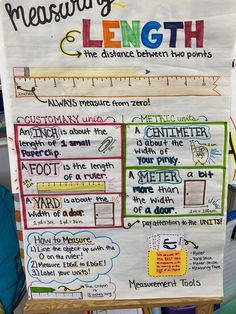 Measuring
LENGTH
the distance between two points
ALWAYS measure from zero!
CUSTOMARY units
An INCH is about the
length of 1 small
Paperclip.
A FOOT is the length
of a ruler.
A YARD is about the
width of a door.
METRIC units
A CENTIMETER
is about the
width of
your pinky.
A METER is a bit
more than
the width
of a door.
pay attention to the UNITS!
How to Measure
1) Line the object up with the
0 on the ruler!
2) Measure EDGE to EDGE!
3) Label your units!
The crayon is
Ruler
Yard stick
Meter stick
Measuring Tape
Measurement Tools